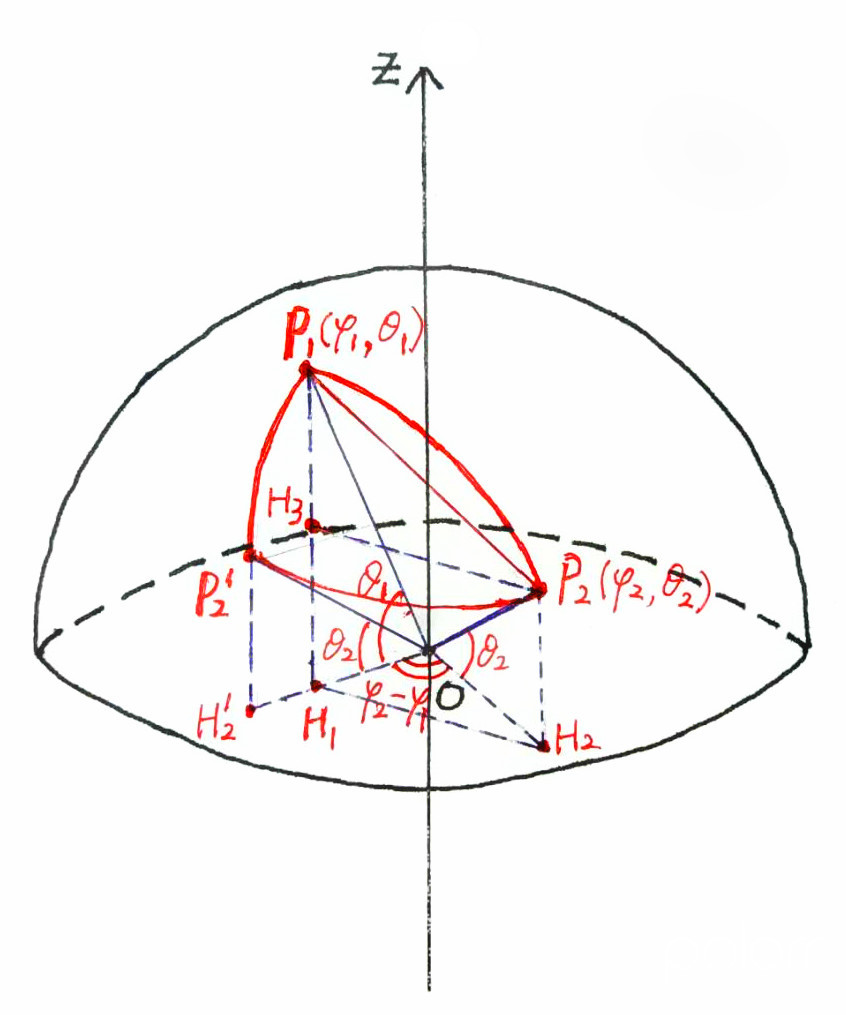 Z
P₁(φ₁,θ₁)
H₃
P₂'
θ₁
P₂(φ₂,θ₂)
θ₂
θ₂
H₂'
H₁
φ₂-φ₁
O
H₂